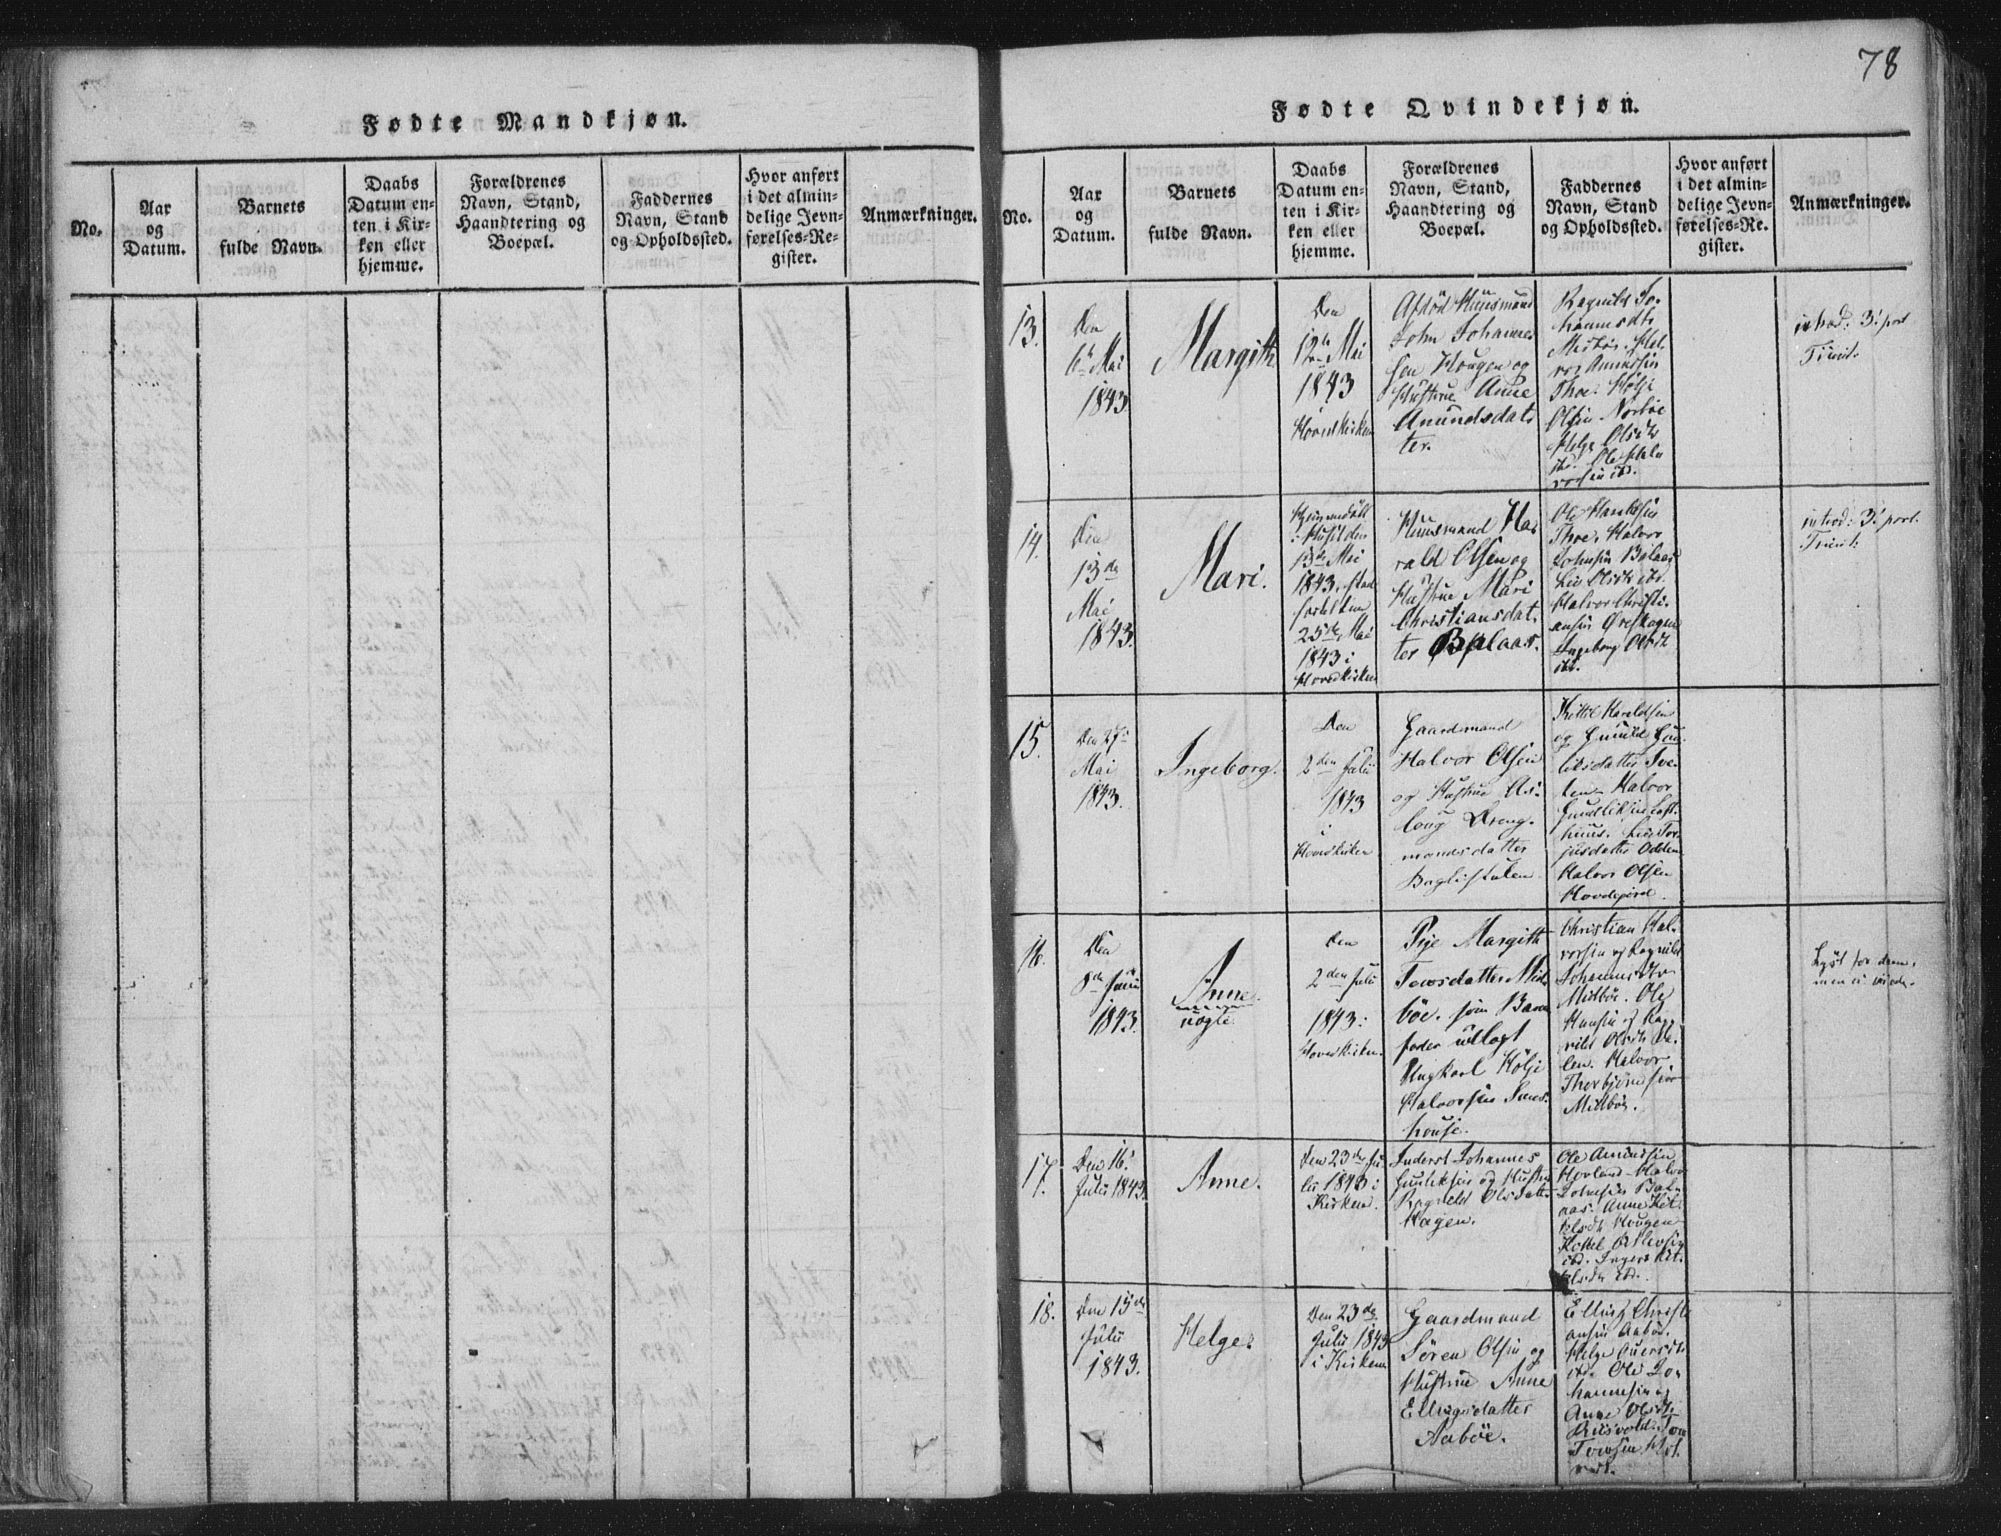 78
Fødte Mandkjøn.
No.
Aar
og
Datum.
Barnets
fulde Navn.
Daabs
Datum en-
ten i Kir-
ken eller
hjemme.
Forældrenes
Navn, Stand,
Haandtering og
Boepæl.
Faddernes
Navn, Stand
og Opholdssted.
Hvor anført
i det almin-
delige Jevn-
førelses-Re-
gister.
Anmærkninger.
Fødte Qvindekjøn.
No.
Aar
og
Datum.
Barnets
fulde Navn.
Daabs
Datum en-
ten i Kir-
ken eller
hjemme.
Forældrenes
Navn, Stand,
Haandtering og
Boepæl.
Faddernes
Navn, Stand
og Opholdssted.
Hvor anført
i det almin-
delige Jevn-
førelses-Re-
gister.
Anmærkninger.
13.
Den
6te Mai
1843.
Margith
Den
12te Mai
1843
Hovedkirken
Afdød Huusmand
John Johannes
sen Hougen og
Hustrue Anne
Anundsdat
ter.
Ragnild Jo-
hannesdtr
Midbøe. Hal
vor Anundsen
Thoe. Hølje
Olsen Norbøe
Helge Olsdtr
ibd. Ole Hal
vorsen ibd.
introd: 3. post
Trinit.
14.
Den
13de
Mai
1843.
Mari.
Hjemmedøbt
i Huset den
13de Mai
1843, stad
fæstet den
25de Mai
1843 i
Hovedkirken
Huusmand Ha
rald Olsen og
Hustrue Mari
Christiansdat
ter Bølaas.
Ole Hansen
Thoe, Halvor
Johnsen Bølaas
Liv Olsdtr ibd.
Halvor Christi
ansen Øreskogen
Ingeborg Olsdtr
ibd.
introd: 3. post.
Trinit:
15.
Den 27.
Mai
1843.
Ingeborg.
Den
2den Julii
1843
i
Hovedkirken
Gaardmand
Halvor Olsen
og Hustrue As-
loug Dreng-
mandsdatter
Kittil Haraldsen
og Gunild
datter
Halvor
Gundliksen Loft-
huus. Liv Tor-
datter Odden
Halvor Olsen
16.
Den
8de Junii
1843.
Anne
uægte
Den
2den Juli
1843:
Hovedkirken.
Pige Margith
Tovsdatter Mid
bøe. som Barne
fader udlagt
Ungkarl Hølje
Halvorsen
house.
Christian Hal-
vorsen og Ragnild
Johannesdtr
Midbøe. Ole
Hansen og Rag
nild Olsdtr
Halvor
Thorbjørnsen
Midbøe.
Lyst for dem,
men ei viede.
17.
Den 16.
Julii 1843.
Anne.
Den 23de Ju
lii 1843 i
Kirken.
Inderst Johannes
Gunliksen og Hustru
Ragnild Olsdatter
Hagen.
Ole Amundsen
Hovland Halvor
Johnsen Bøl-
aas. Anne Kit
telsdtr Hougen
Kittel Østensen
ibd. Inger Kit
telsdtr ibd.
18.
Den 15de
Julii
1843.
Helge.
Den 23de
Julii 1843
i Kirken
Gaardmand
Søren Olsen og
Hustrue Anne
Ellingsdatter
Aabøe.
Elling Christi
ansen Aabøe.
Helge
ibd. Ole Jo-
hannesen og
Anne Olsdtr
Tovsen